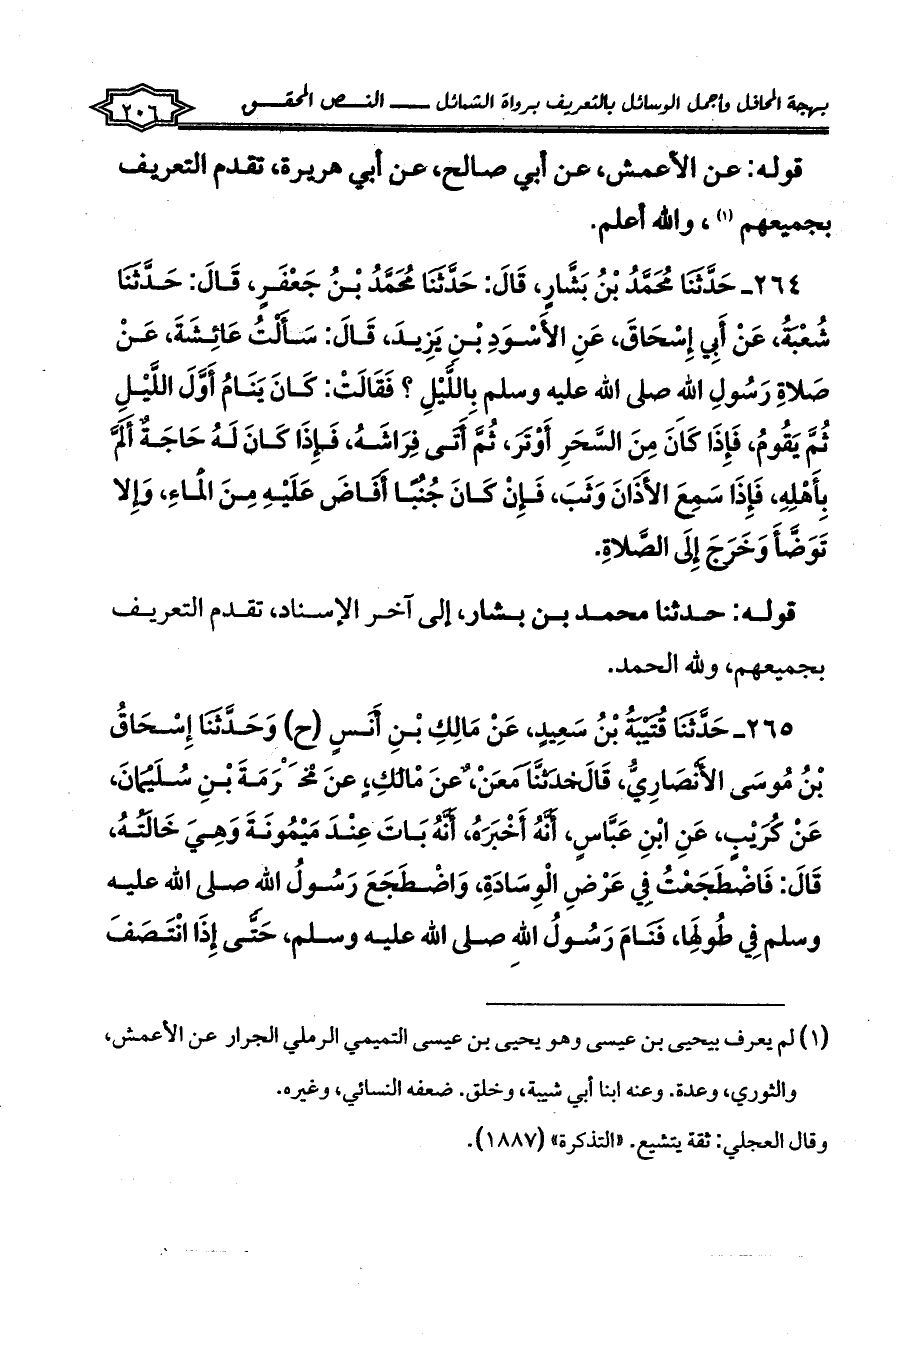 بهجة المحافل وأجمل الوسائل بالتعريف برواة الشمائل ــــ النـص المحقـق
٢٠٦
قوله: عن الأعمش، عن أبي صالح، عن أبي هريرة، تقدم التعريف
بجميعهم (١)، والله أعلم.
٢٦٤ـ حَدَّثَنَا مُحَمَّدُ بْنُ بَشَّارٍ، قَالَ: حَدَّثَنَا مُحَمَّدُ بْنُ جَعْفَرٍ، قَالَ: حَدَّثَنَا
شُعْبَةُ، عَنْ أَبِي إِسْحَاقَ، عَنِ الأَسْوَدِ بْنِ يَزِيدَ، قَالَ: سَأَلْتُ عَائِشَةَ، عَنْ
صَلاةِ رَسُولِ الله صلى الله عليه وسلم بِاللَّيْلِ ؟ فَقَالَتْ: كَانَ يَنَامُ أَوَّلَ اللَّيْلِ
ثُمَّ يَقُومُ، فَإِذَا كَانَ مِنَ السَّحَرِ أَوْتَرَ، ثُمَّ أَتَى فِرَاشَهُ، فَإِذَا كَانَ لَهُ حَاجَةٌ أَلَمَّ
بِأَهْلِهِ، فَإِذَا سَمِعَ الأَذَانَ وَثَبَ، فَإِنْ كَانَ جُنُبًا أَفَاضَ عَلَيْهِ مِنَ الْمَاءِ، وَإِلا
تَوَضَّأَ وَخَرَجَ إِلَى الصَّلاةِ.
قوله: حدثنا محمد بن بشار، إلى آخر الإسناد، تقدم التعريف
بجميعهم، ولله الحمد.
٢٦٥ـ حَدَّثَنَا قُتَيْبَةُ بْنُ سَعِيدٍ، عَنْ مَالِكِ بْنِ أَنَسٍ (ح) وَحَدَّثَنَا إِسْحَاقُ
بْنُ مُوسَى الأَنْصَارِيُّ، قَالَ حَدَّثَنَا مَعَنْ، عَنْ مَالِكٍ، عَنْ مَخْرَمَةَ بْنِ سُلَيْمَانَ،
عَنْ كُرَيْبٍ، عَنِ ابْنِ عَبَّاسٍ، أَنَّهُ أَخْبَرَهُ، أَنَّهُ بَاتَ عِنْدَ مَيْمُونَةَ وَهِيَ خَالَتُهُ،
قَالَ: فَاضْطَجَعْتُ فِي عَرْضِ الْوِسَادَةِ، وَاضْطَجَعَ رَسُولُ الله صلى الله عليه
وسلم فِي طُولِهَا، فَنَامَ رَسُولُ الله صلى الله عليه وسلم، حَتَّى إِذَا انْتَصَفَ
(١) لم يعرف بيحيى بن عيسى وهو يحيى بن عيسى التميمي الرملي الجرار عن الأعمش،
والثوري، وعدة. وعنه ابنا أبي شيبة، وخلق. ضعفه النسائي، وغيره.
وقال العجلي: ثقة يتشيع. «التذكرة» (١٨٨٧).